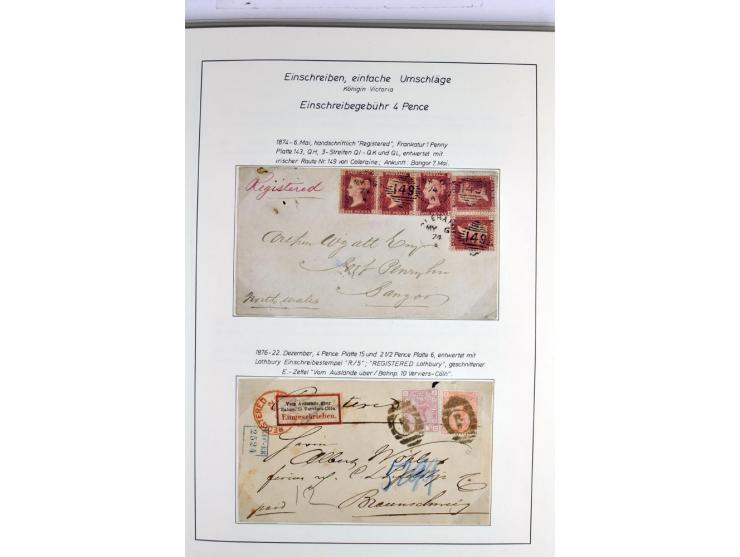 Einschreiben, einfache Umschläge
Königin Victoria
Einschreibegebühr 4 Pence
1874-6. Mai, handschriftlich "Registered", Frankatur 1 Penny
Platte 143, QH, 3-Streifen QI-QK und QL, entwertet mit
irischer Route Nr. 149 von Coleraine; Ankunft: Bangor 7. Mai.
Registered
149
149
MY 6
74
Arthur Wyatt Esqre
Penrhyn
Bangor
North Wales
1876-22. Dezember, 4 Pence Platte 15 und 2 1/2 Pence Platte 6, entwertet mit
Lothbury Einschreibestempel "R/5"; "REGISTERED Lothbury", geschnittener
E.-Zettel "Vom Auslande über/Bahnp. 10 Verviers-Cöln".
REGISTERED
Vom Auslande über
Bahnp. 10 Verviers-Cöln
Eingeschrieben.
Registered
2524
Herrn
Albert
paid
12
Braunschweig